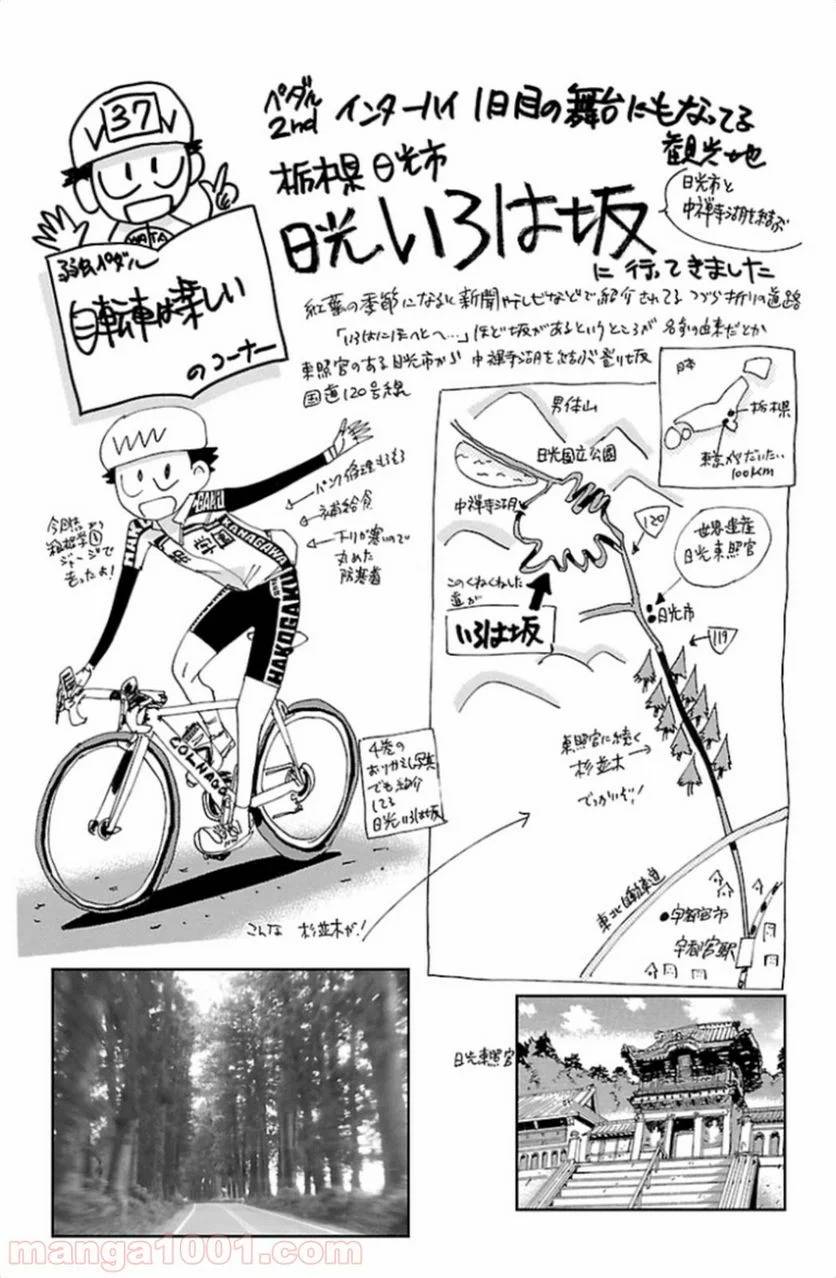 37
WATA
弱虫ペダル
自転車は楽しい
のコーナー
ペダル
2nd
インターハイ 1日目の舞台にもなってる
観光地
栃木県 日光市
日光いろは坂
日光市と
中禅寺湖を結ぶ
に 行ってきました
紅葉の季節になると新聞やテレビなどで紹介されてる つづら折りの道路
「いろはにほへとへ…」ほど坂があるというところが 名前の由来だとか
東照宮のある日光市から 中禅寺湖を結ぶ登り坂
国道120号線
パンク修理もろもろ
補給食
下りが寒いので
丸めた
防寒着
今回
箱根学園
ジャージで
走ったよ!
HAKOGAKU
KANAGAWA
学園
HAKOGAKU
COLNAGO
4巻の
おりかえし写真
でも紹介
してる
日光いろは坂
日本
栃木県
東京からだいたい
100Km
男体山
日光国立公園
中禅寺湖
120
世界遺産
日光東照宮
このくねくねした
道が
いろは坂
日光市
119
東照宮に続く
杉並木
でっかいぞ!
東北自動車道
宇都宮市
宇都宮駅
こんな 杉並木が!
日光東照宮
manga1001.com